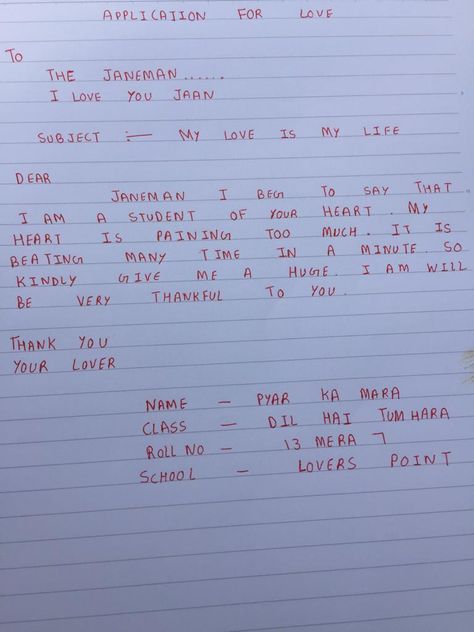 APPLICATION FOR LOVE
To
THE JANEMAN......
I LOVE YOU JAAN
SUBJECT :- MY LOVE IS MY LIFE
DEAR
JANEMAN I BEG TO SAY THAT
I AM A STUDENT OF YOUR HEART. MY
HEART IS PAINING TOO MUCH. IT IS
BEATING MANY TIME IN A MINUTE. SO
KINDLY GIVE ME A HUGE. I AM WILL
BE VERY THANKFUL TO YOU.
THANK YOU
YOUR LOVER
NAME - PYAR KA MARA
CLASS - DIL HAI TUMHARA
ROLL NO - 13 MERA 7
SCHOOL - LOVERS POINT